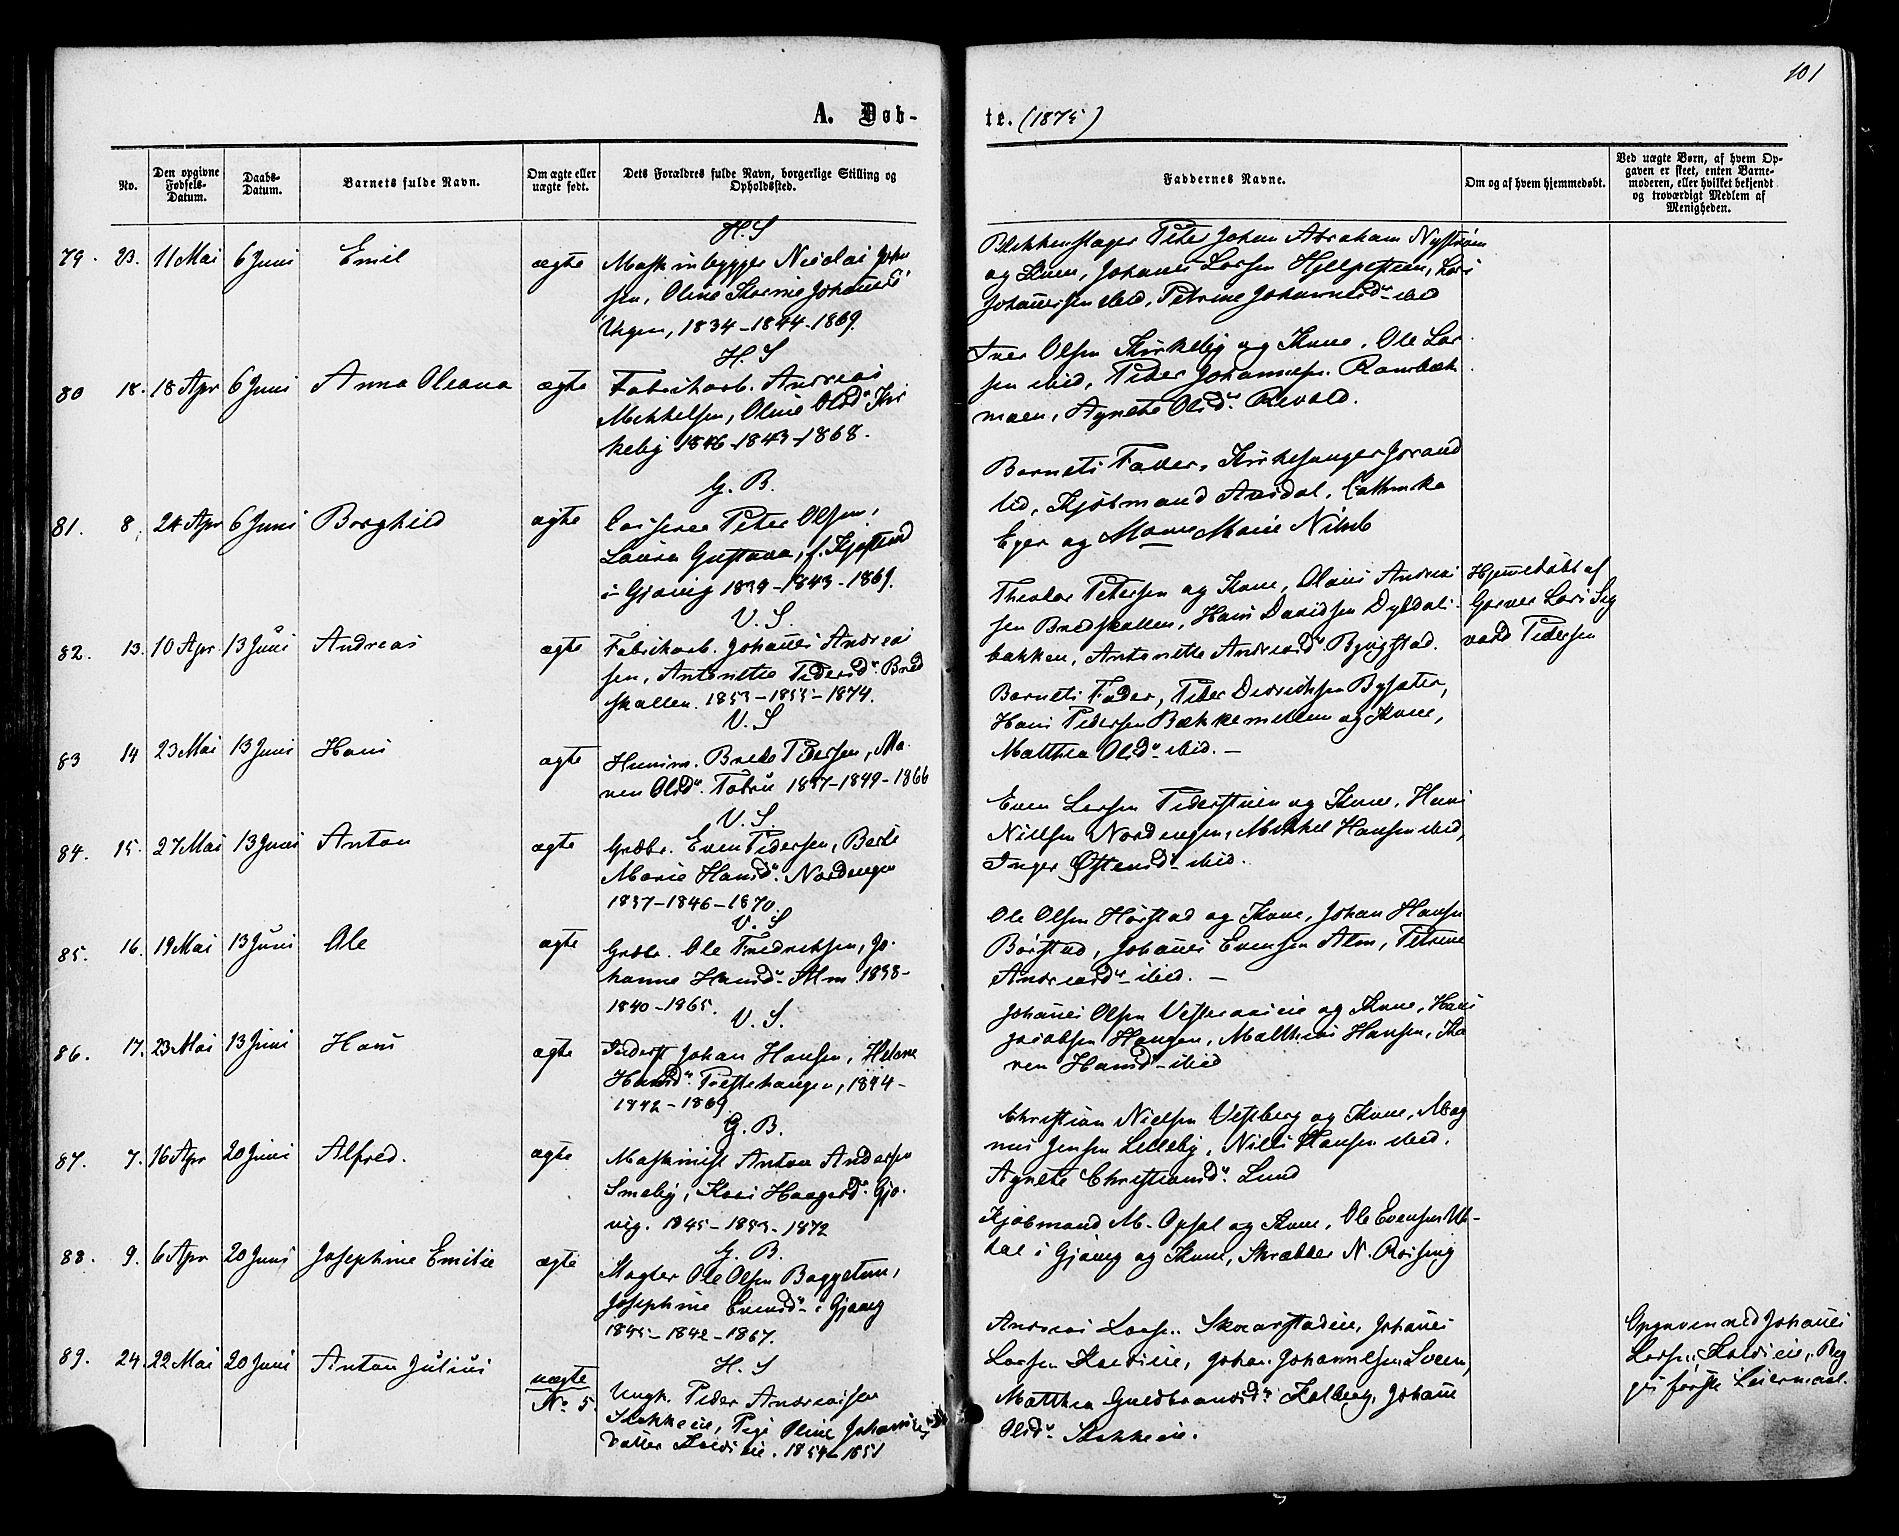 101
A. Døb-
te. (1875)
No.
Den opgivne Fødsels-Datum.
Daabs-Datum.
Barnets fulde Navn.
Om ægte eller uægte født.
Dets Forældres fulde Navn, borgerlige Stilling og Opholdssted.
Faddernes Navne.
Om og af hvem hjemmedøbt.
Ved uægte Børn, af hvem Op-
gaven er skeet, enten Barne-
moderen, eller hvilket bekjendt
og troværdigt Medlem af
Menigheden.
H. S
79. 23. 11 Mai 6 Juni Emil ægte
Nicolai John
sen, Oline
1834-1844-1869.
Blikkenslager Peter Johan Abraham Nystrøm
og Kone, Johannes Larsen Lars
Johannessen ibid, Petrine Johannesd. ibid
H. S
80 18. 18 Apr 6 Juni Anna Oleana ægte
Fabrikarb. Andreas
Mikkelsen, Oline Olsd. Kir
keby 1846-1843-1868.
Iver Olsen Kirkeby og Kone, Ole Lar
sen ibid, Peder Johannesen
moen, Agnete Olsd.
G. B.
81. 8. 24 Apr 6 Juni Borghild ægte
Peter Olsen,
Laura Gustava, f.
i Gjøvig 1839-1843-1869.
Barnets Fader, Kirkesanger
Kjøbmand Cathinka
Eger og Marie
V. S.
82. 13. 10 Apr 13 Juni Andreas ægte
Fabrikarb. Johannes Andreas
sen, Antonette Pedersd. Bred
skallen. 1853-1855-1874.
Theodor Petersen og Kone, Olaus Andreas
sen Bredskallen, Hans Davidsen
bakken, Antonette Andreasd.
Hjemmedøbt af
Garver Lars Sig
vard Pedersen
V. S
83 14 23 Mai 13 Juni Hans ægte
Husm. Brede Pedersen, Ma
ren Olsd. 1837-1849-1866
Barnets Fader, Peder Didriksen
Hans Pedersen og Kone,
Matthea Olsd. ibid. -
V. S.
84. 15. 27 Mai 13 Juni Anton ægte
Grdbr. Even Pedersen, Berte
Marie Hansd. Nordengen
1837-1846-1870.
Even Larsen og Kone, Hans
Nielsen Nordengen, Mikkel Hansen ibid,
Inger ibid.
V. S
85. 16. 19 Mai 13 Juni Ole ægte
Grdbr. Ole Fredriksen, Jo-
hanne Hansd. Alm 1838-
1840-1865.
Ole Olsen Hørstad og Kone, Johan Hansen
Børstad, Johannes Evensen Alm, Petrine
Andreasd. ibid. -
V. S.
86. 17. 23 Mai 13 Juni Hans ægte
Inderst Johan Hansen, Helene
Hansd. Prestehaugen, 1844-
1842-1869
Johannes Olsen og Kone, Hans
Jacobsen Haugen, Matthias Hansen, Ka
ren Hansd. ibid
G. B.
87. 7. 16 Apr 20 Juni Alfred. ægte
Maskinist Anton Andersen
Smeby, Kari Haagensd. Gjø-
vig. 1845-1853-1872
Christian Nielsen Vestberg og Kone, Mag
nus Jensen Lilleby, Nils Hansen ibid.
Agnete Christiansd. Lund
G. B.
88. 9. 6 Apr 20 Juni Josephine Emilie ægte
Slagter Ole Olsen
Josephine Evensd. i Gjøvig
1845-1842-1867.
Kjøbmand M. Opsal og Kone, Ole Evensen
i Gjøvig og Kone, Skrædder N. Røising
H. S
89. 24. 22 Mai 20 Juni Anton Julius uægte
No. 5.
Ungk. Peder Andreassen
Stokkeeie, Pige Oline Johannes
datter 1854-1851
Andreas Larsen Johannes
Larsen Johan Johannesen Sveen,
Matthea Guldbrandsd. Johanne
Olsd. Stokkeeie.
Opgaven ved Johannes
Larsen Beg
ges første Leiermaal.